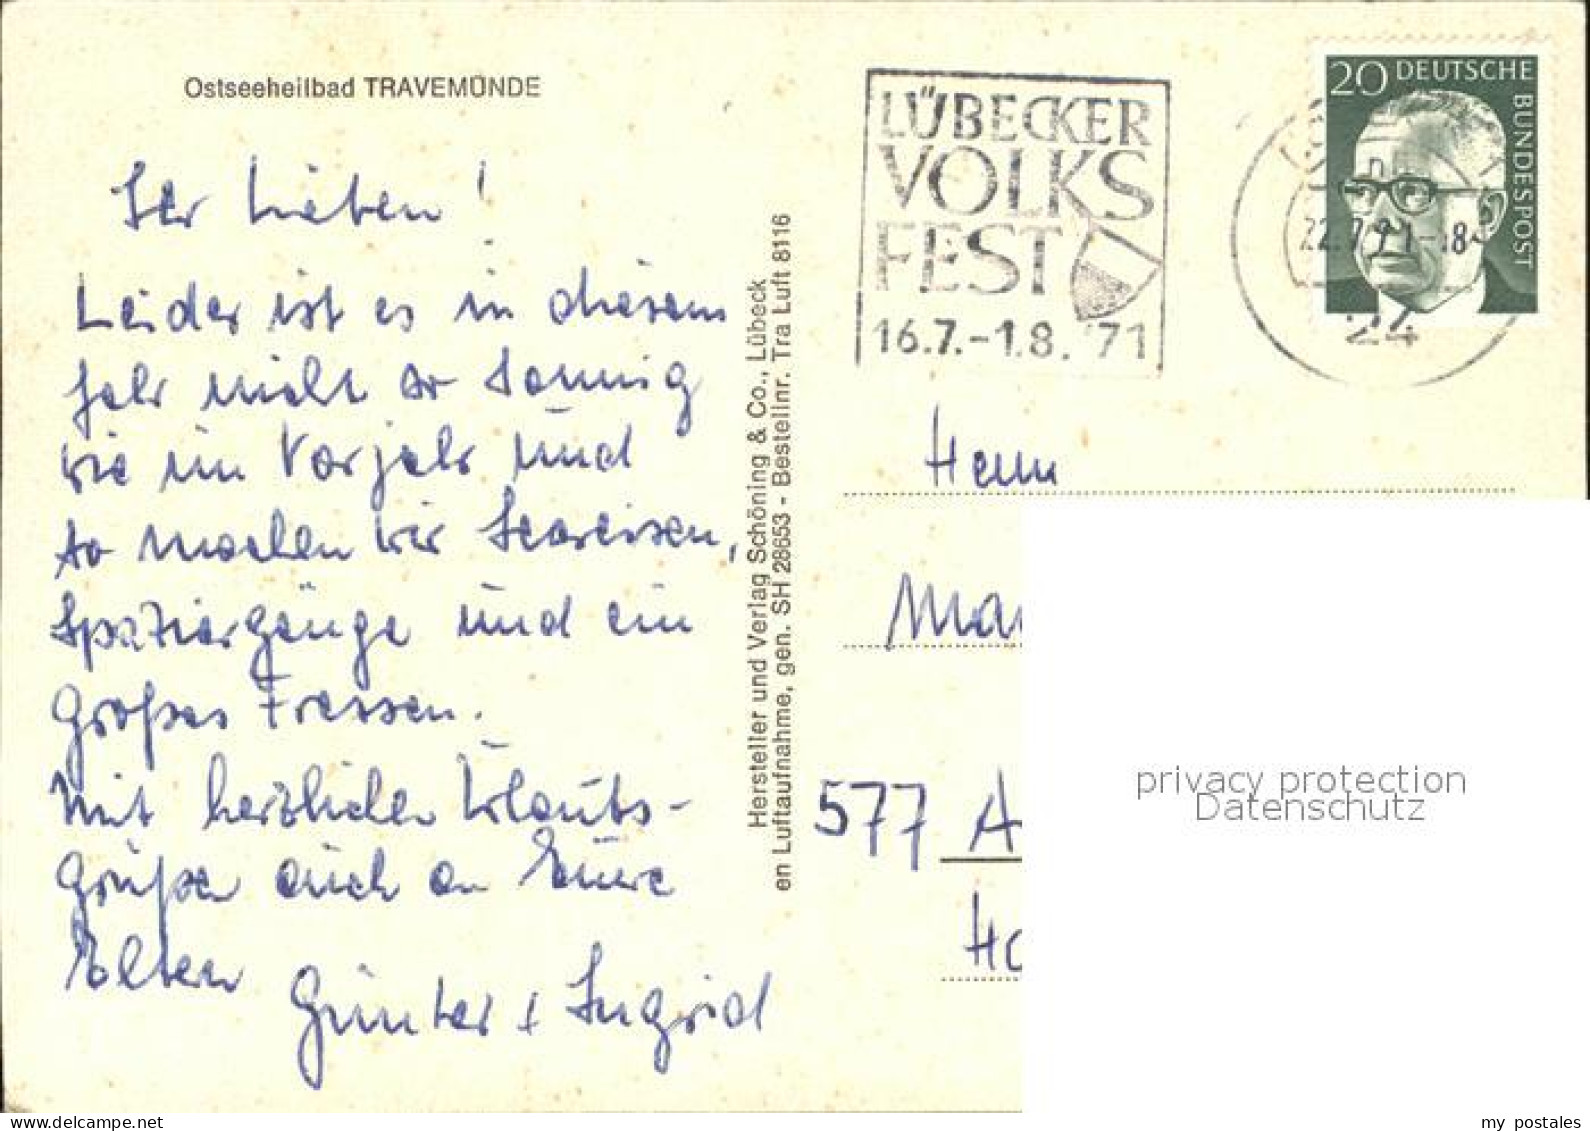 Ostseeheilbad TRAVEMÜNDE
Ihr Lieben!
Leider ist es in diesem
Jahr nicht so sonnig
wie im Vorjahr und
so machen wir Seereisen,
Spaziergänge und ein
großes Fressen.
Mit herzlichen Urlaubs-
grüßen auch an Eure
Eltern
Günter + Ingrid
Hersteller und Verlag Schöning & Co., Lübeck
en Luftaufnahme, gen. SH 28653 - Bestellnr. Tra Luft 8116
LÜBECKER
VOLKS
FEST
16.7.-1.8.'71
20 DEUTSCHE
BUNDESPOST
24
Herrn
577 A
privacy protection
Datenschutz
my postales